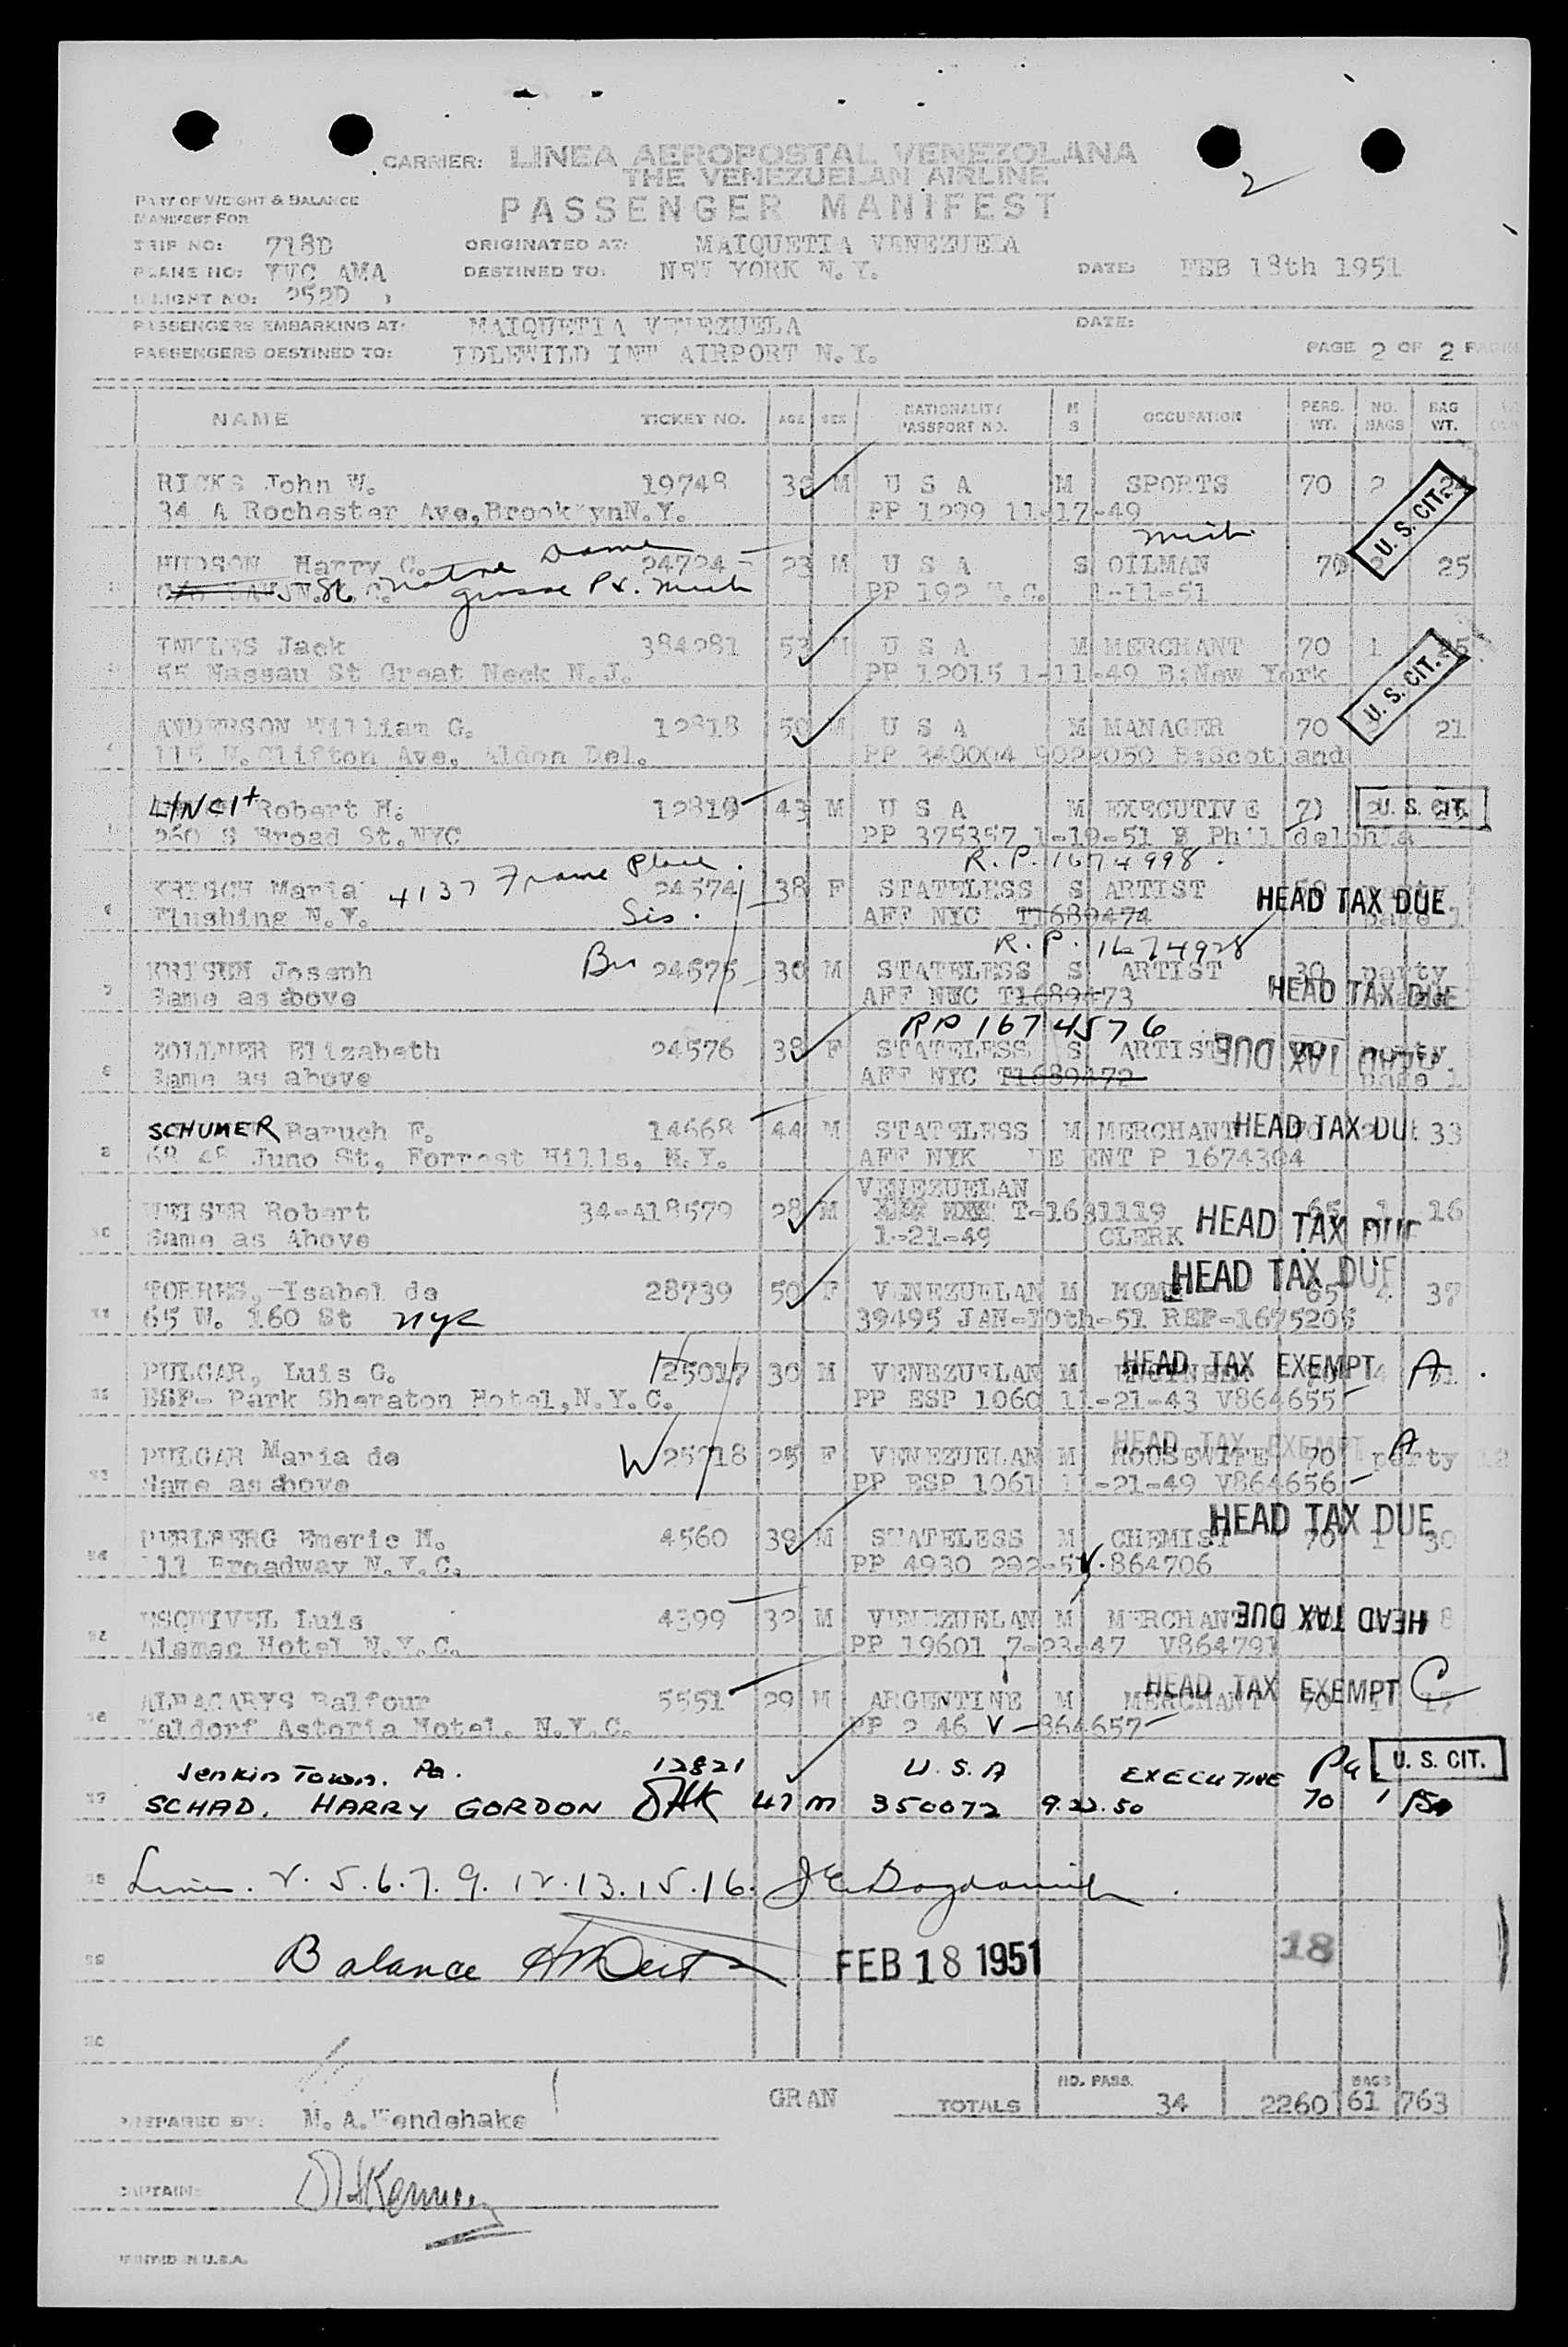 2
CARRIER: LINEA AEROPOSTAL VENEZOLANA
THE VENEZUELAN AIRLINE
PART OF WEIGHT & BALANCE
MANIFEST FOR
PASSENGER MANIFEST
TRIP NO: 718D ORIGINATED AT: MAIQUETIA VENEZUELA
PLANE NO: YVC AMA DESTINED TO: NEW YORK N.Y. DATE: FEB 18th 1951
FLIGHT NO: 252D
PASSENGERS EMBARKING AT: MAIQUETIA VENEZUELA DATE:
PASSENGERS DESTINED TO: IDLEWILD INT AIRPORT N.Y. PAGE 2 OF 2
NAME TICKET NO. AGE SEX NATIONALITY PASSPORT NO. M S OCCUPATION PERS. WT. NO. BAGS BAG WT.
RICKS John W. 19748 M U S A M SPORTS 70 2
34 A Rochester Ave, Brooklyn N.Y. PP 1299 11-17-49 U. S. CIT.
HUDSON Harry C. Notre Dame 24724 23 M U S A S OILMAN 70 25
Grosse Pt. Mich PP 192 1-11-51
INKLES Jack 384281 53 M U S A M MERCHANT 70 1 25
55 Nassau St Great Neck N.J. PP 12015 1-11-49 B:New York U. S. CIT.
ANDERSON William G. 12818 50 M U S A M MANAGER 70 21
115 N.Clifton Ave, Aldon Del. PP 340004 9022050 B:Scotland
Robert H. 12819 43 M U S A M EXECUTIVE U. S. CIT.
260 S Broad St, NYC PP 375357 1-19-51 B Philadelphia
4137 Frame Place R.P. 1674998
KRISCH Maria 24574 38 F STATELESS S ARTIST HEAD TAX DUE
Flushing N.Y. Sis. AFF NYC T1689474
R.P. 1674928
Joseph Br 24575 30 M STATELESS S ARTIST 30 party
Same as above AFF NYC T1689473 HEAD TAX DUE
RP 1674576
ZOLLNER Elizabeth 24576 38 F STATELESS S ARTIST HEAD TAX DUE party
Same as above AFF NYC T1689472 page 1
SCHUMER Baruch F. 14668 44 M STATELESS M MERCHANT HEAD TAX DUE 33
Juno St, Forrest Hills, N.Y. AFF NYK RE ENT P 1674304
VENEZUELAN
Robert 34-418579 28 M T-1631119 65 1 16
Same as Above 1-21-49 CLERK HEAD TAX DUE
TORRES,-Isabel de 28739 50 F VENEZUELAN M HOME HEAD TAX DUE 65 4 37
65 W. 160 St nyc 39495 JAN-10th-51 REP-1675205
PULGAR, Luis G. H 25017 30 M VENEZUELAN M ENGINEER HEAD TAX EXEMPT 4 A
ESP- Park Sheraton Hotel, N.Y.C. PP ESP 1060 11-21-43 V864655
PULGAR Maria de W 25018 25 F VENEZUELAN M HOUSEWIFE HEAD TAX EXEMPT A 70 party 12
Same as above PP ESP 1061 11-21-49 V864656
Emeric M. 4560 39 M STATELESS M CHEMIST HEAD TAX DUE 70 1 30
111 Broadway N.Y.C. PP 4930 V.864706
ESQUIVEL Luis 4399 32 M VENEZUELAN M MERCHANT HEAD TAX DUE 8
Alamac Hotel N.Y.C. PP 19601 7-23-47 V864791
ALBACARYS Balfour 5551 29 M ARGENTINE M MERCHANT HEAD TAX EXEMPT C 70 1 17
Waldorf Astoria Hotel, N.Y.C. PP 2 46 V-864657
Jenkin Town. Pa. 12821 U.S.A EXECUTIVE Pa. U. S. CIT.
SCHAD, HARRY GORDON 47 M 350072 9.22.50 70 1
Lines. 2. 5. 6. 7. 9. 12. 13. 15. 16.
Balance FEB 18 1951 18
GRAN TOTALS NO. PASS. 34 2260 BAGS 61 763
PREPARED BY: M. A. Wendehake
CAPTAIN:
PRINTED IN U.S.A.